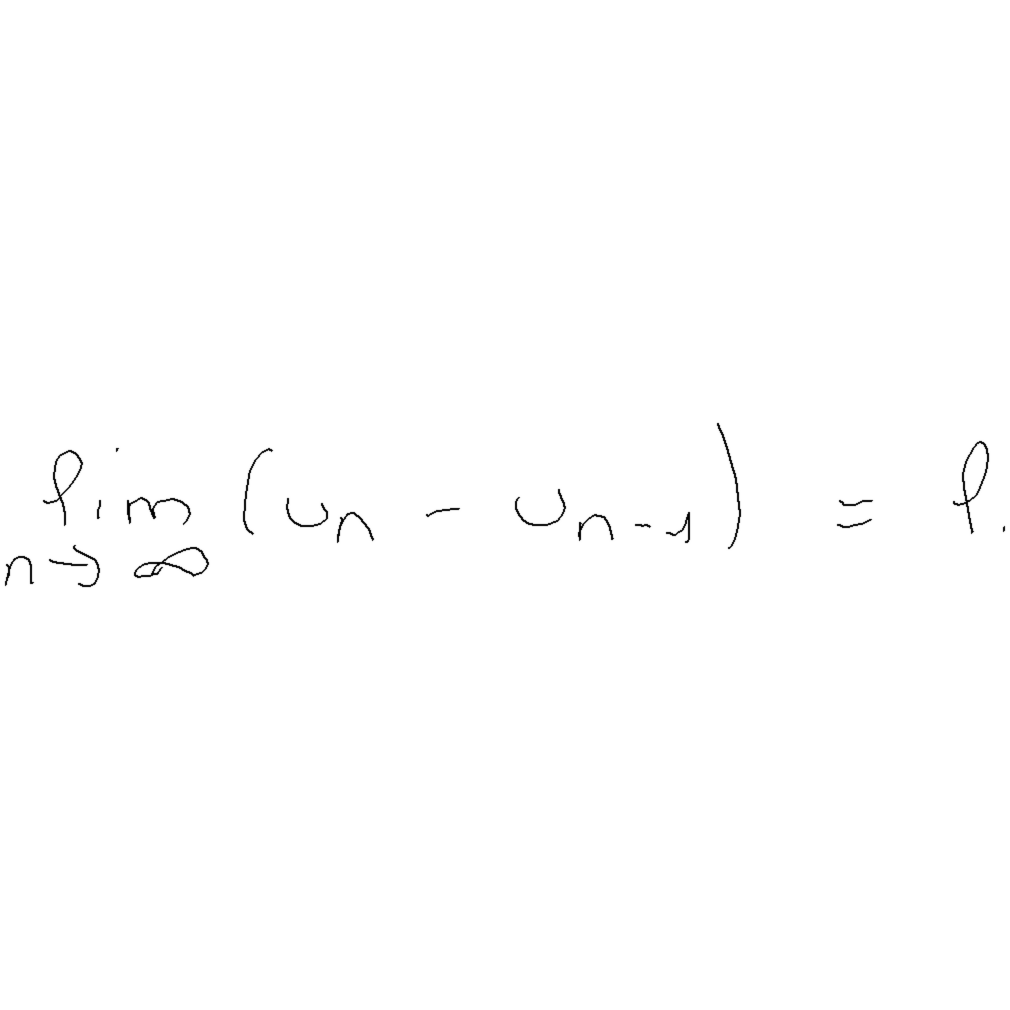 \lim_{n \to \infty} (u_n - u_{n-1}) = l.